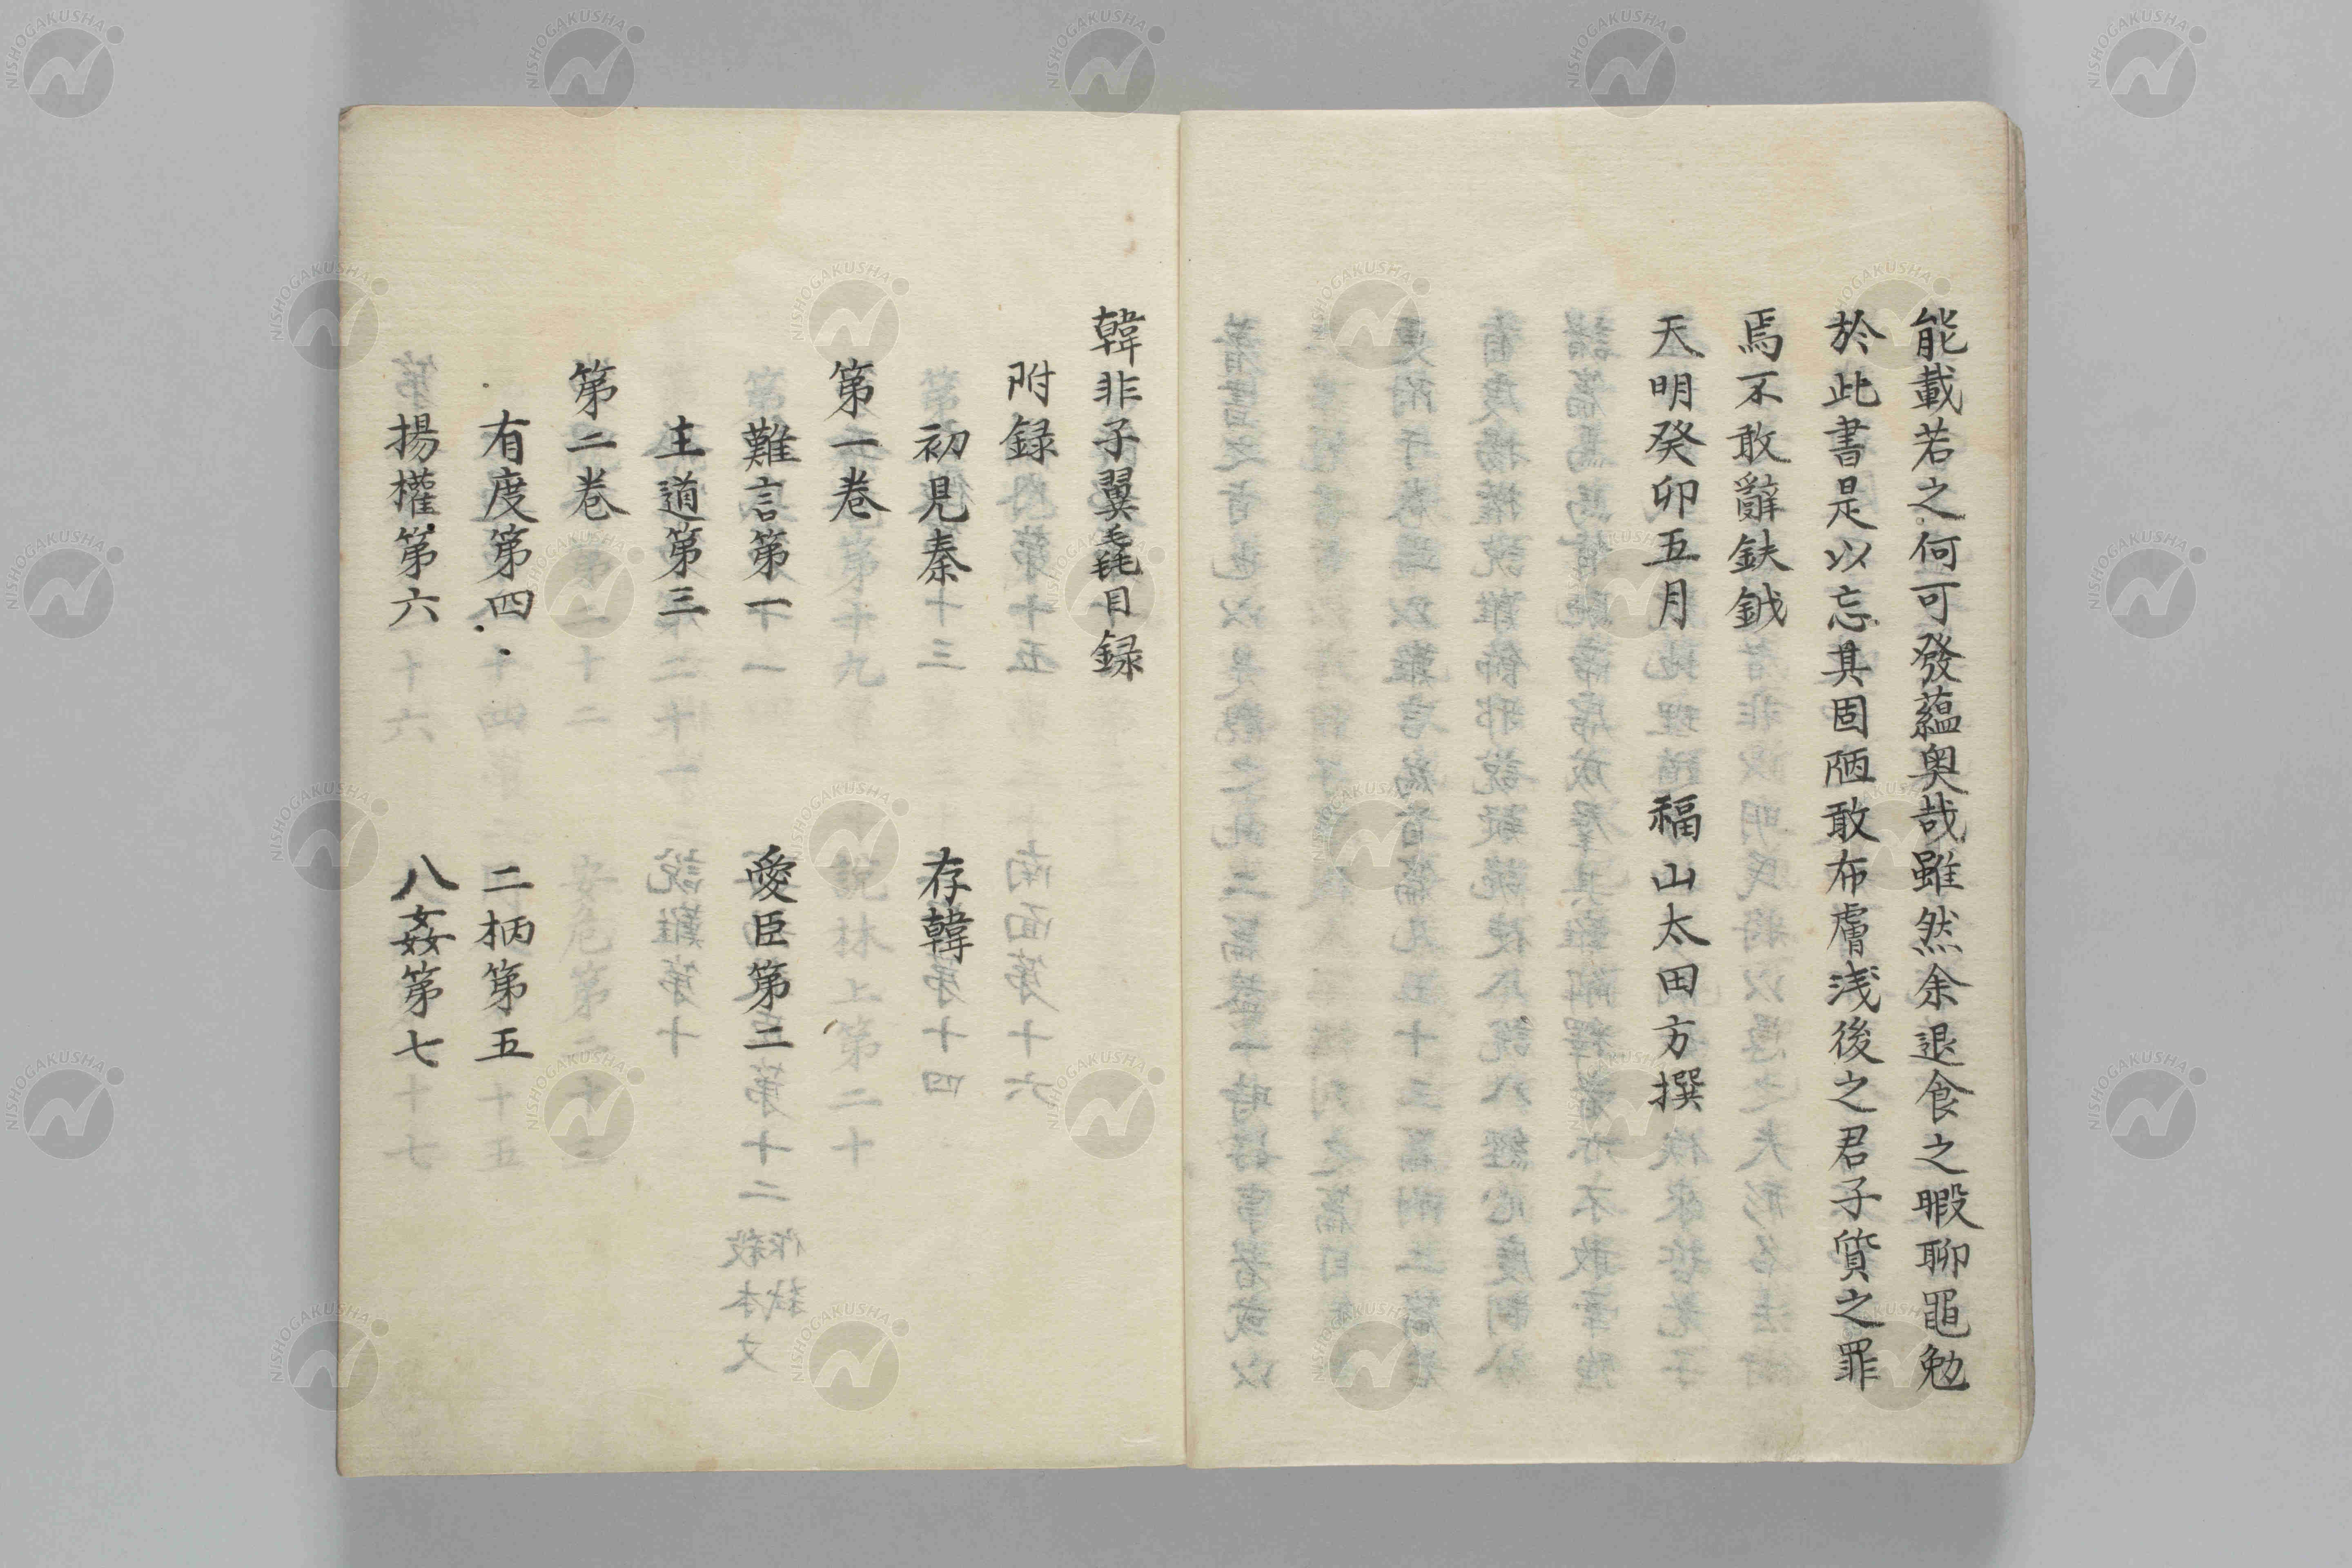 能載若之何可發蘊奥哉雖然余退食之暇聊黽勉
於此書是以忘其固陋敢布膚浅後之君子質之罪
焉不敢辭鈇鉞
天明癸卯五月 福山太田方撰
韓非子翼毳目録
附録
初見秦 存韓
第一巻
難言第一 愛臣第二
主道第三
第二巻
有度第四 二柄第五
揚權第六 八姦第七